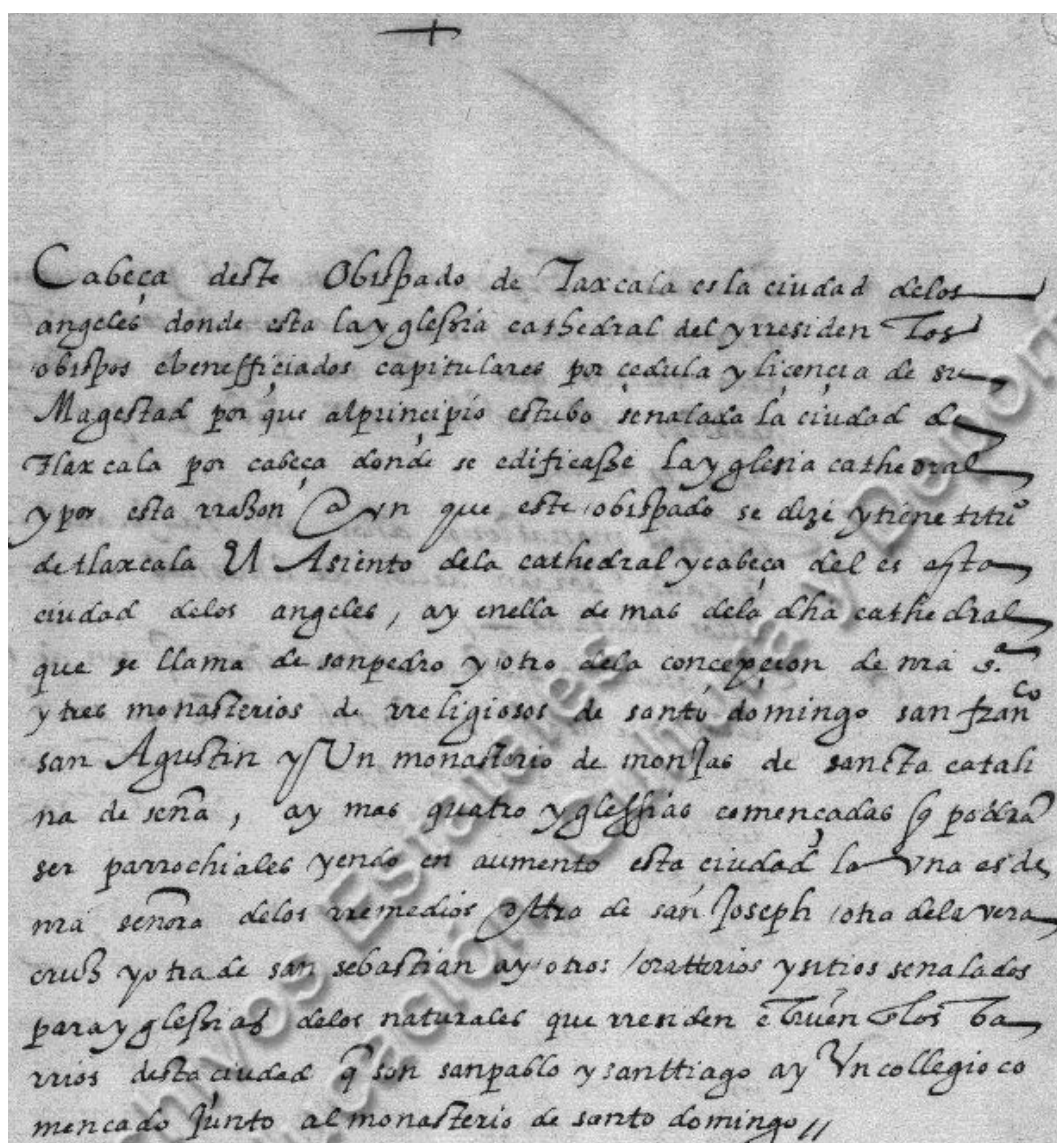 +
Cabeça deste Obispado de Taxcala es la ciudad delos
angeles donde esta la yglessia cathedral del y rresiden los
obispos e benefficiados capitulares por çedula y licencia de su
Magestad por que al principio estubo senalada la ciudad de
Tlaxcala por cabeça donde se edificasse la yglesia cathedral
y por esta rrazon aun que este obispado se dize y tiene titu
de tlaxcala el Asiento dela cathedral y cabeça del es esta
ciudad delos angeles, ay enella de mas dela dha cathedral
que se llama de san pedro y otro dela concepçion de nra s.a
y tres monasterios de rreligiosos de santo domingo san franco
san Agustin y Un monasterio de monjas de sancta catali
na de sena, ay mas quatro yglessias començadas q podra
ser parrochiales yendo en aumento esta ciudad la una es de
nra señora delos rremedios otra de san Joseph otra dela vera
cruz y otra de san sebastian ay otros oratorios y sitios senalados
para yglessias delos naturales que rresiden los ba
rrios desta ciudad q son san pablo y santtiago ay Un collegio co
mencado junto al monasterio de santo domingo //
Archivos Estatales
Educación, Cultura y Deporte